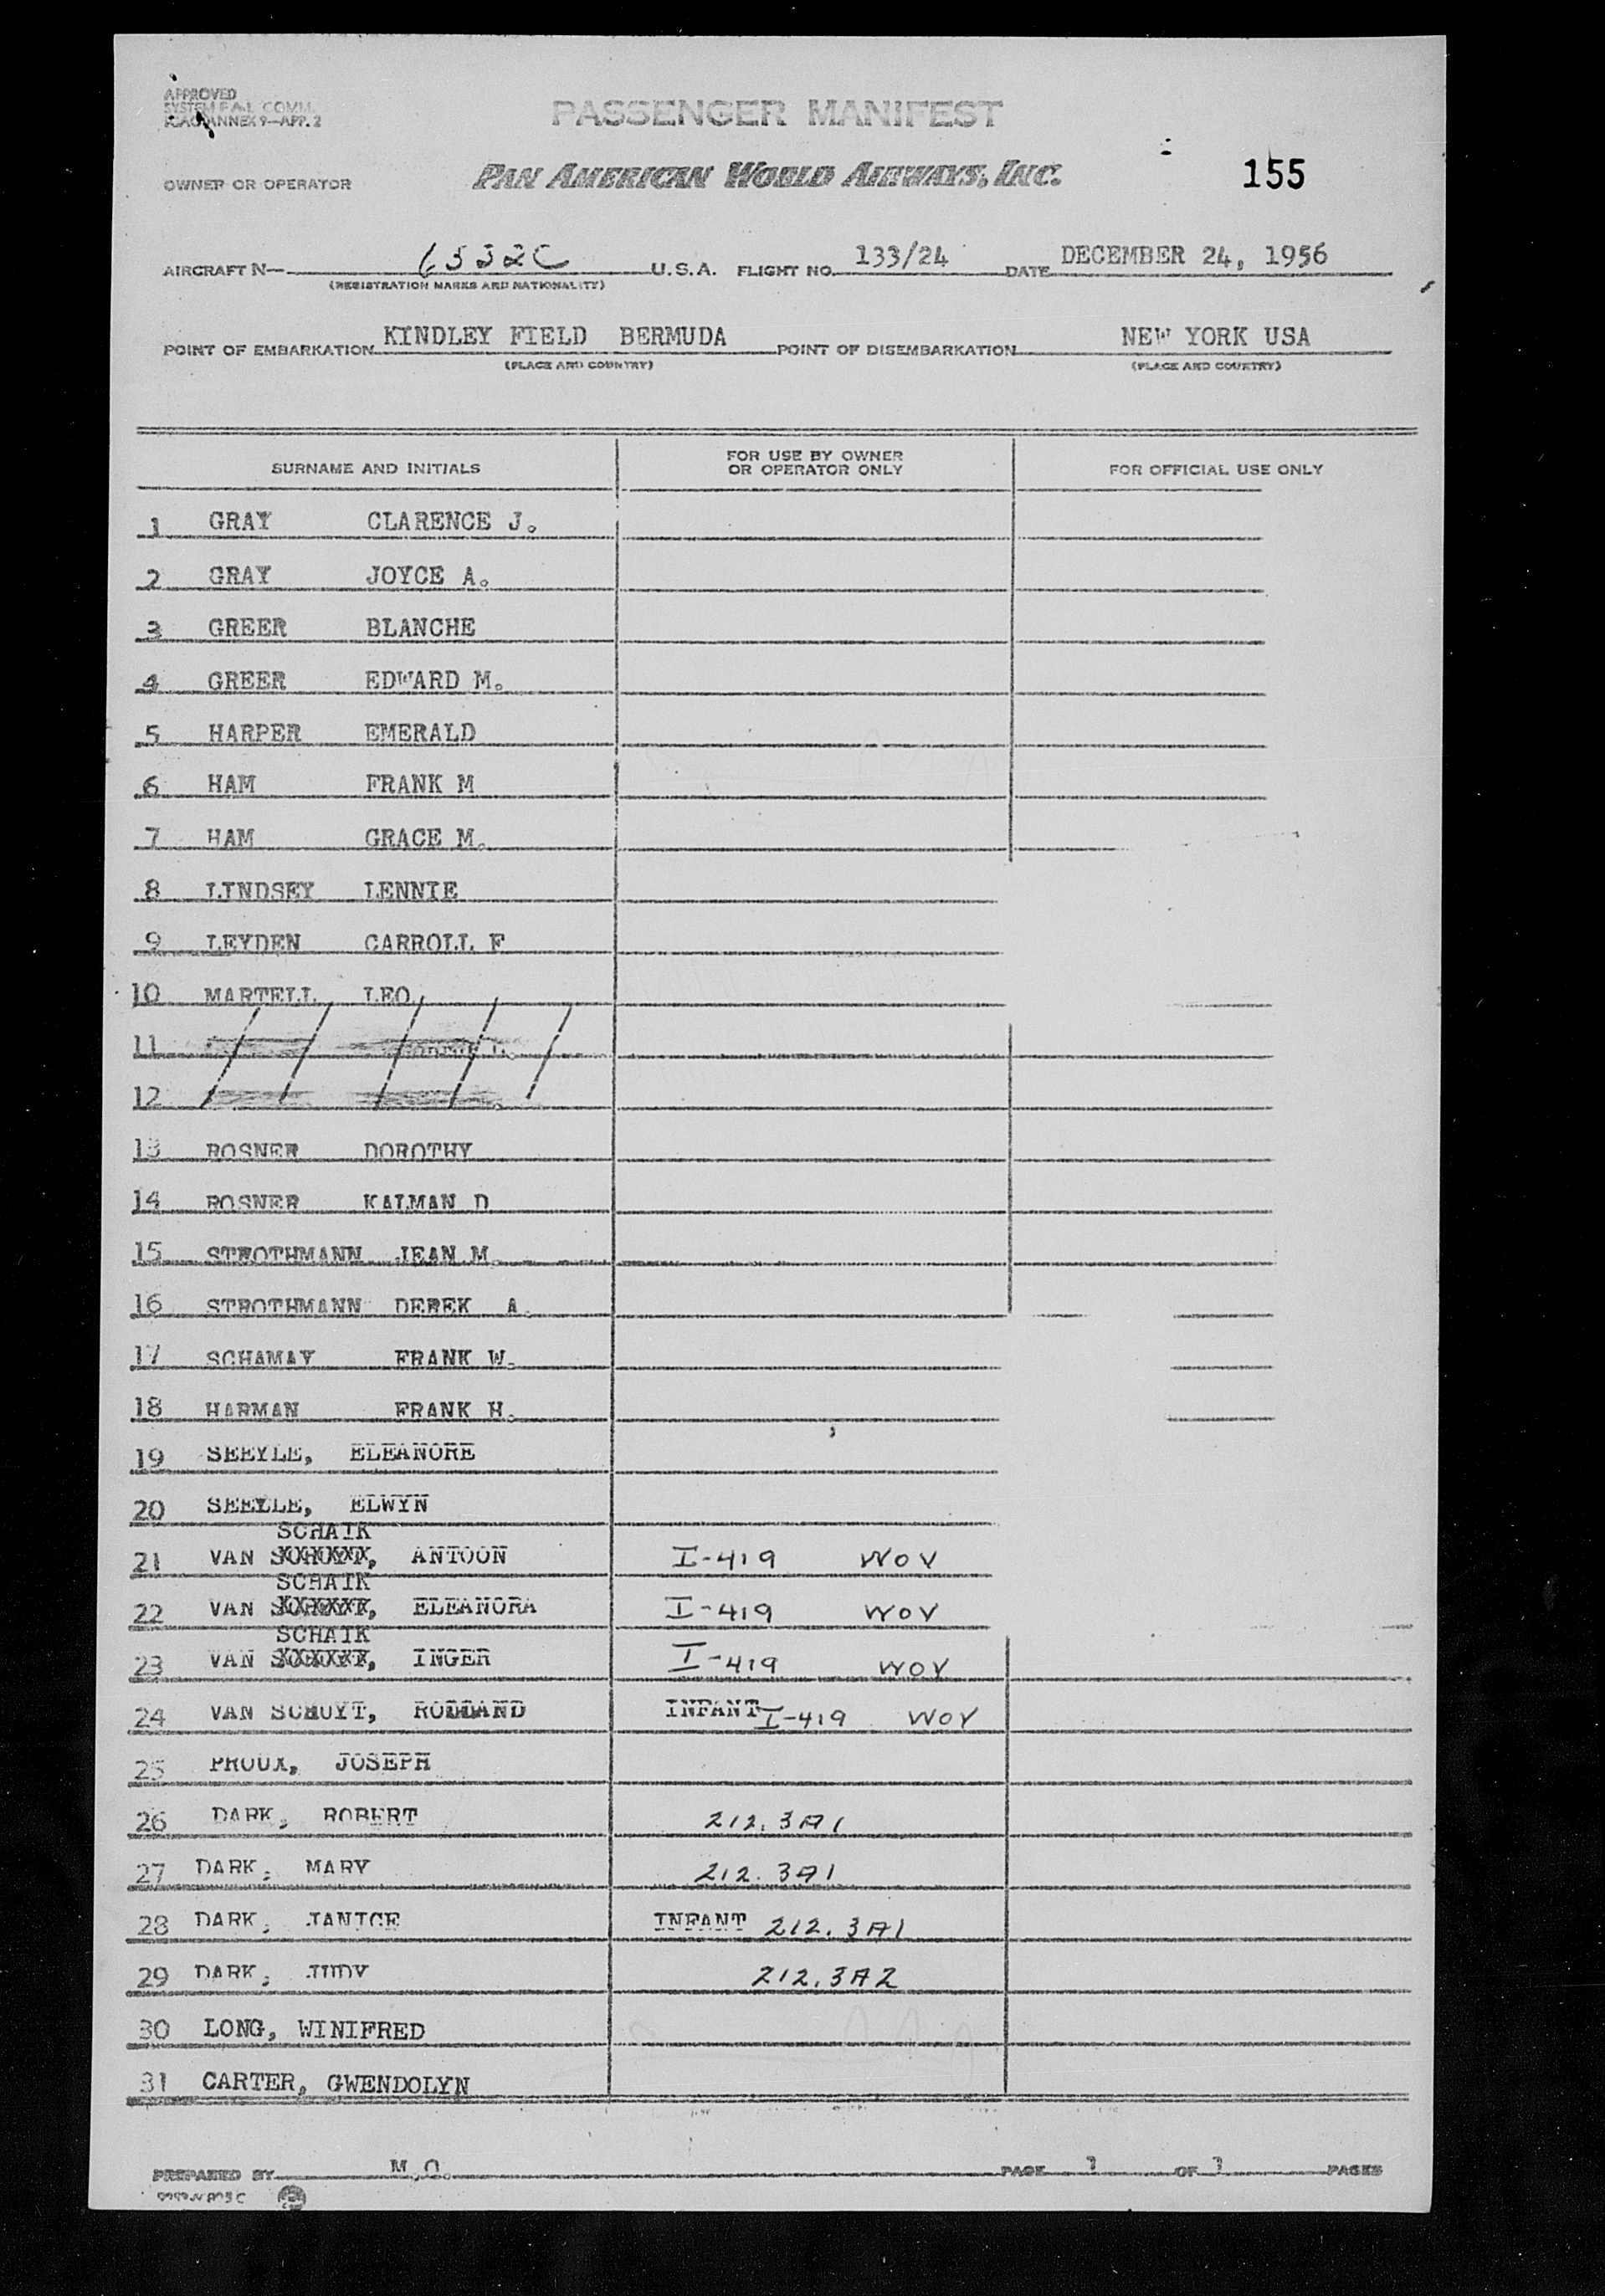 APPROVED
SYSTEM F.A.L. COMM.
ICAO ANNEX 9—APP. 2
PASSENGER MANIFEST
OWNER OR OPERATOR PAN AMERICAN WORLD AIRWAYS, INC. 155
AIRCRAFT N— 6532C U.S.A. FLIGHT NO. 133/24 DATE DECEMBER 24, 1956
(REGISTRATION MARKS AND NATIONALITY)
POINT OF EMBARKATION KINDLEY FIELD BERMUDA POINT OF DISEMBARKATION NEW YORK USA
(PLACE AND COUNTRY) (PLACE AND COUNTRY)
SURNAME AND INITIALS FOR USE BY OWNER OR OPERATOR ONLY FOR OFFICIAL USE ONLY
1 GRAY CLARENCE J.
2 GRAY JOYCE A.
3 GREER BLANCHE
4 GREER EDWARD M.
5 HARPER EMERALD
6 HAM FRANK M
7 HAM GRACE M.
8 LINDSEY LENNIE
9 LEYDEN CARROLL F
10 MARTELL LEO
11
12
13 ROSNER DOROTHY
14 ROSNER KALMAN D
15 STROTHMANN JEAN M.
16 STROTHMANN DEREK A.
17 SCHAMAY FRANK W.
18 HARMAN FRANK H.
19 SEEYLE, ELEANORE
20 SEEYLE, ELWYN
SCHAIK
21 VAN XXXXXX, ANTOON I-419 WOV
SCHAIK
22 VAN XXXXXX, ELEANORA I-419 WOV
SCHAIK
23 VAN XXXXXX, INGER I-419 WOV
24 VAN SCHUYT, INFANT I-419 WOV
25 PROUX, JOSEPH
26 DARK, ROBERT 212.3A1
27 DARK, MARY 212.3A1
28 DARK, JANICE INFANT 212.3A1
29 DARK, JUDY 212.3A2
30 LONG, WINIFRED
31 CARTER, GWENDOLYN
PREPARED BY M.O. PAGE 1 OF 1 PAGES